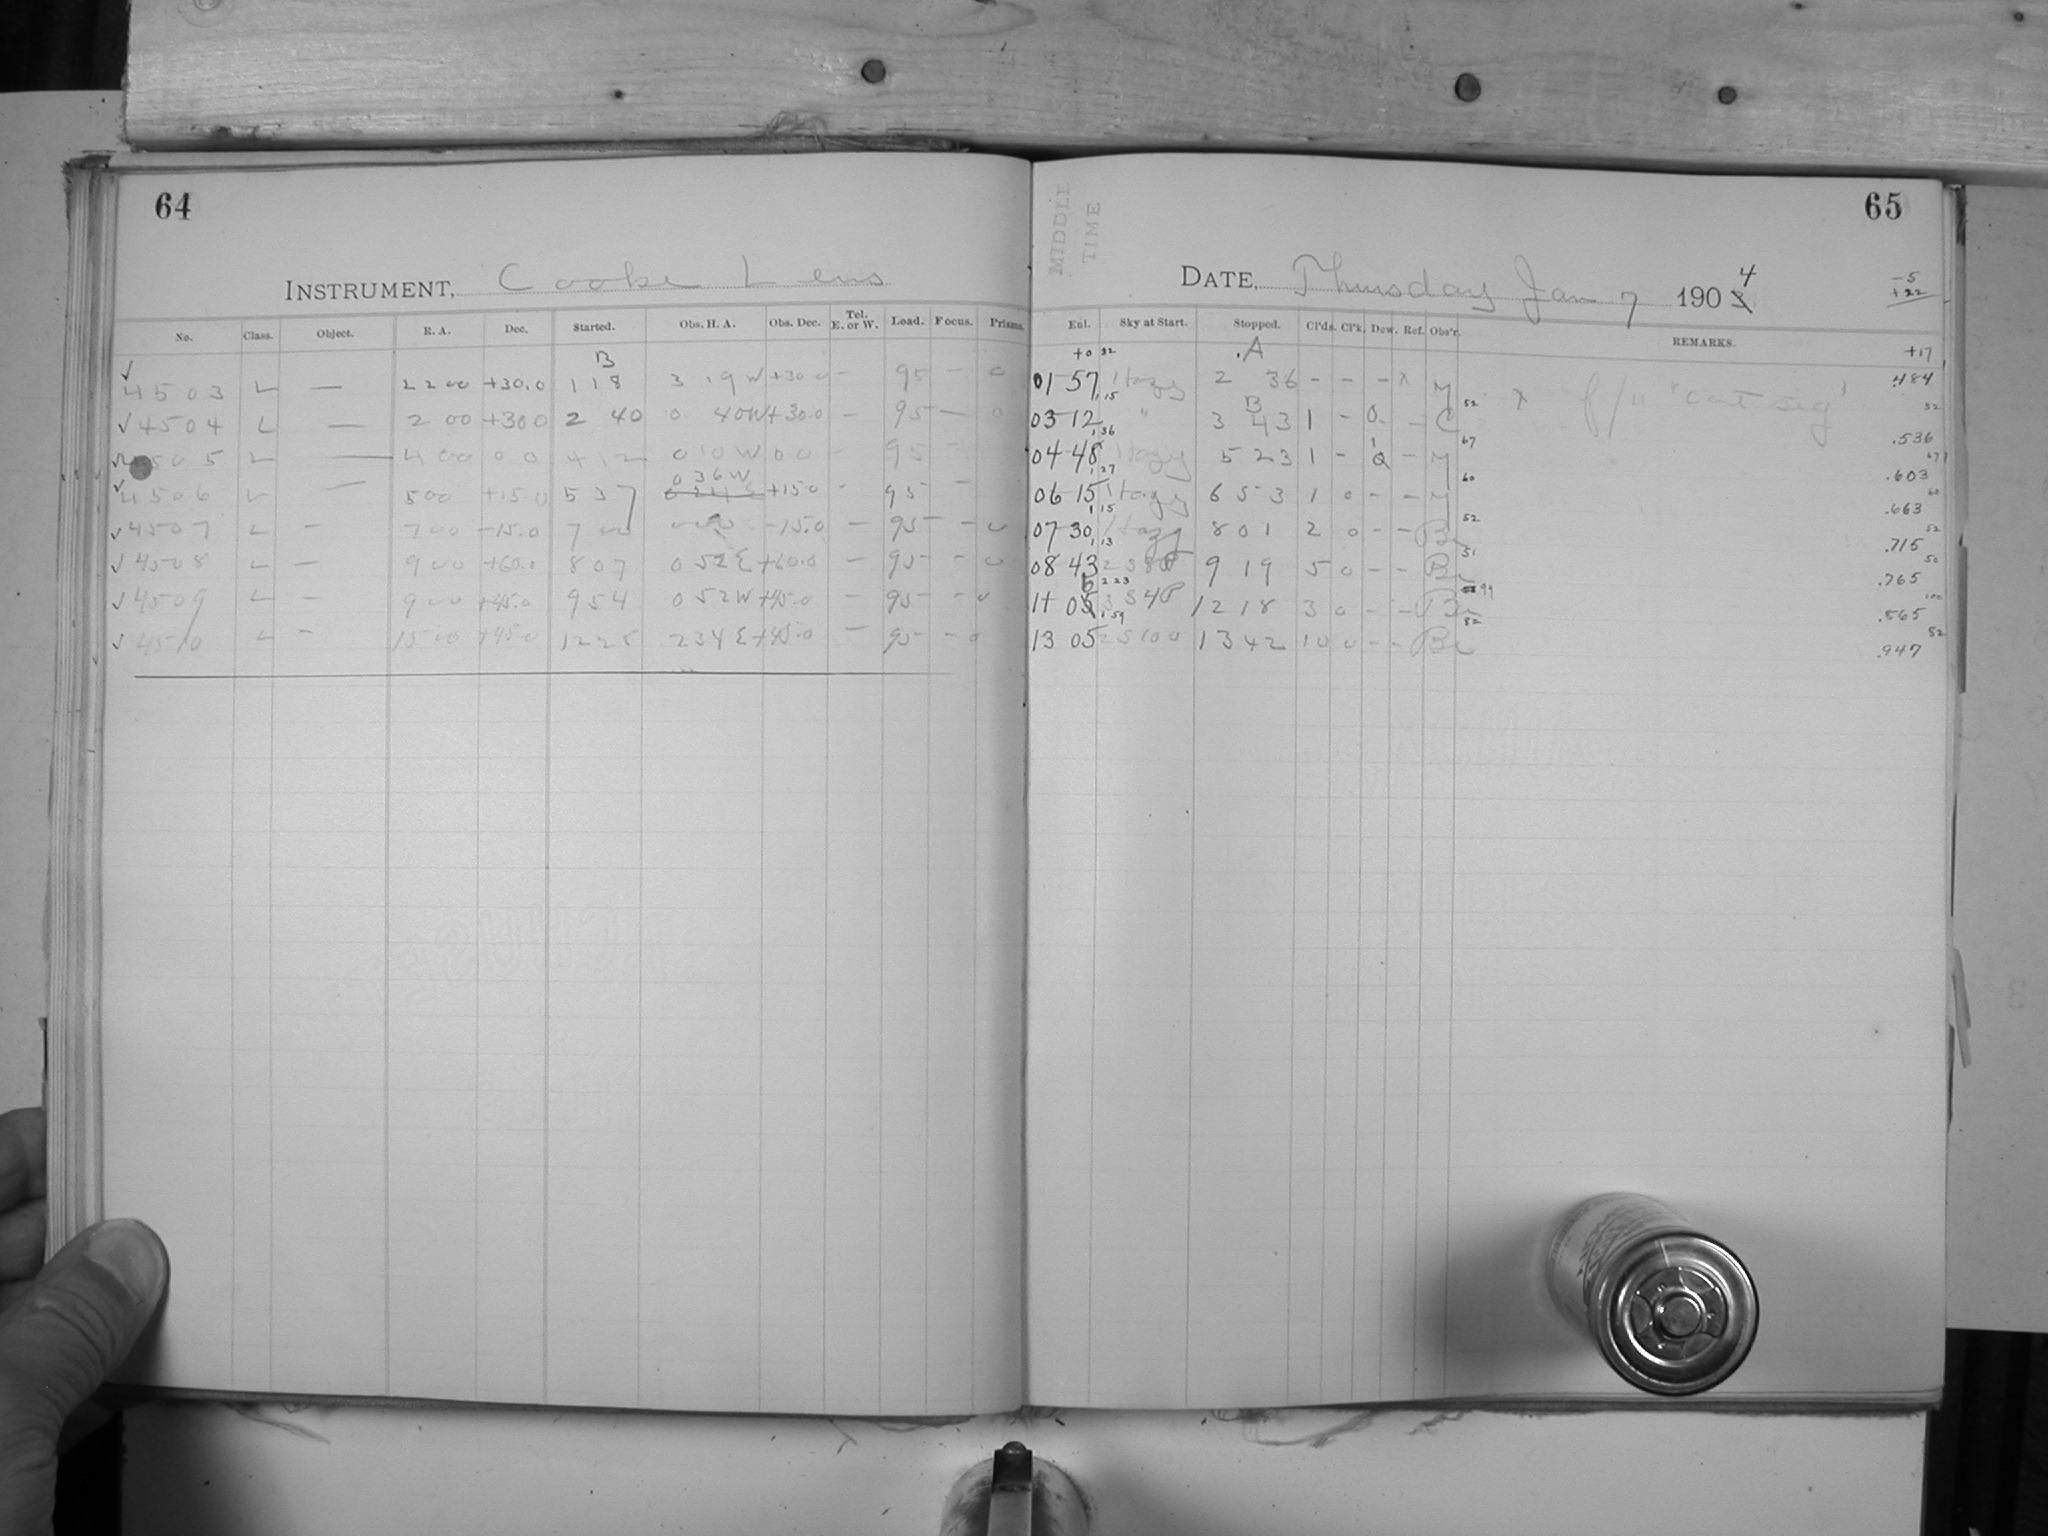 64
INSTRUMENT, Cooke Lens
No. Class. Object. R. A. Dec. Started. Obs. H. A. Obs. Dec. Tel. E. or W. Load. Focus. Prisms.
B
✓ 4503 L — 22 00 +30.0 1 18 3 19 W +30.0 – 95 – 0
✓ 4504 L — 2 00 +30.0 2 40 0 40 W +30.0 – 95 — 0
L — 4 00 0 0 4 12 0 10 W 0 0 95 –
0 36 W
✓ 4506 L — 5 00 +15.0 5 37 +15.0 95 –
✓ 4507 L – 7 00 –15.0 7 00 –15.0 – 95 – – 0
✓ 4508 L – 9 00 +60.0 8 07 0 52 E +60.0 – 95 – – 0
✓ 4509 L – 9 00 +45.0 9 54 0 52 W +45.0 – 95 – – 0
✓ 4510 L – 15 00 +45.0 12 28 2 34 E +45.0 – 95 – – 0
MIDDLE
TIME
65
DATE, Thursday Jan 7 1904
–5
+22
Enl. Sky at Start. Stopped. Cl'ds. Cl'k. Dew. Ref. Obs'r. REMARKS.
+0 32 A +17
01 57 Hazy 2 36 – – – x y x f/11 .484
1 15 B 52 52
03 12 " 3 43 1 – 0 – C .536
1 36 67 67
04 48 Hazy 5 23 1 – – y .603
1 27 60 60
06 15 Hazy 6 53 1 0 – – y .663
1 15 52 52
07 30 Hazy 8 01 2 0 – – Br .715
1 13 51 50
08 43 2 S 80 9 19 5 0 – – Br .765
2 23 99 100
11 06 3 S 40 12 18 3 0 – – Br .865
1 59 82 82
13 05 2 S 100 13 42 10 0 – – Br .947